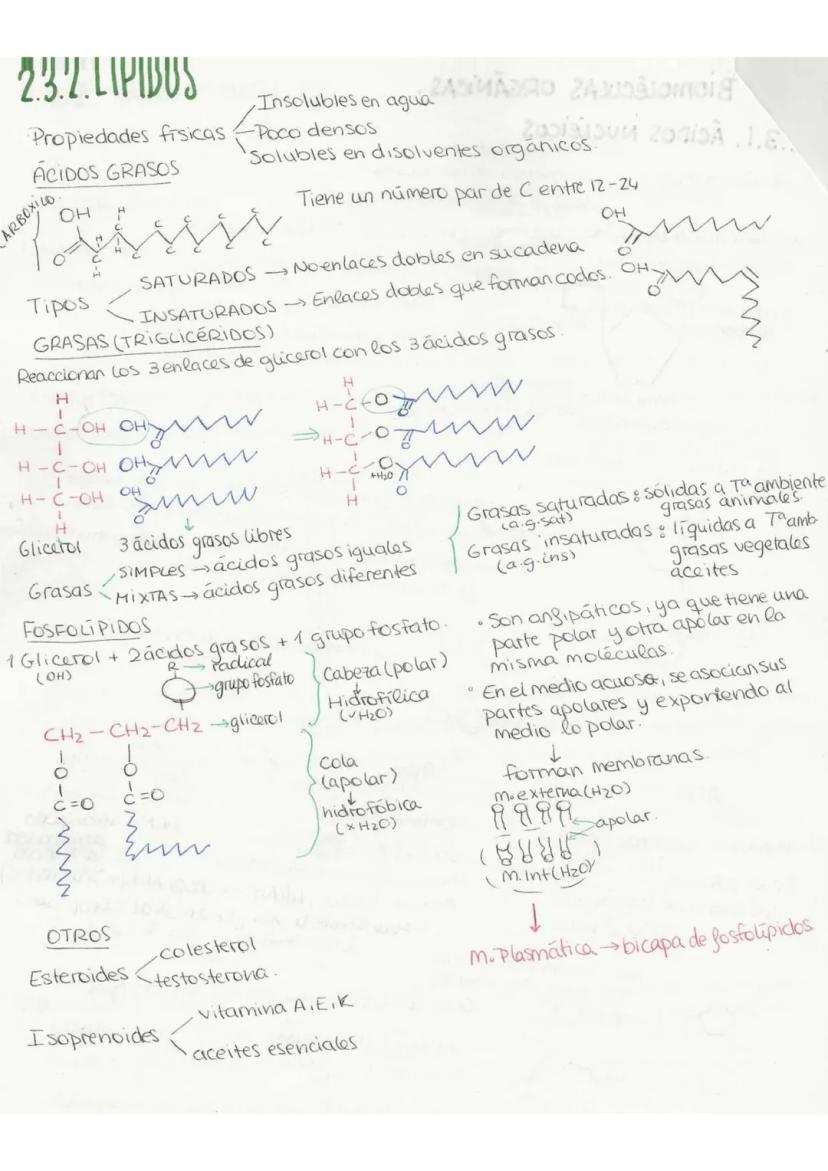 2.3.2. LÍPIDOS
Propiedades físicas
Insolubles en agua
Poco densos
Solubles en disolventes orgánicos.
ÁCIDOS GRASOS
Tiene un número par de C entre 12-24
CARBOXILO
OH
O
H
C
H
H
C
H
C C C C
C C C C
OH
O
OH
O
Tipos
SATURADOS → No enlaces dobles en su cadena
INSATURADOS → Enlaces dobles que forman codos.
GRASAS (TRIGLICÉRIDOS)
Reaccionan los 3 enlaces de glicerol con los 3 ácidos grasos.
H
H - C - OH OH
O
H - C - OH OH
O
H - C - OH OH
O
H
⇒
H
H - C - O
O
H - C - O
O
H - C - O
+H2O
O
H
Glicerol
3 ácidos grasos libres
Grasas
SIMPLES → ácidos grasos iguales
MIXTAS → ácidos grasos diferentes
Grasas saturadas: sólidas a Tª ambiente
(a.g.sat) grasas animales.
Grasas insaturadas: líquidas a Tª amb
(a.g.ins) grasas vegetales
aceites
FOSFOLÍPIDOS
1 Glicerol + 2 ácidos grasos + 1 grupo fosfato.
(OH)
R → radical
→ grupo fosfato
CH2 - CH2 - CH2 → glicerol
O O
C=O C=O
Cabeza (polar)
↓
Hidrofílica
(✓H2O)
Cola
(apolar)
↓
hidrofóbica
(x H2O)
• Son anfipáticos, ya que tiene una
parte polar y otra apolar en la
misma moléculas.
• En el medio acuoso, se asocian sus
partes apolares y exponiendo al
medio lo polar.
↓
forman membranas.
m. externa (H2O)
apolar.
(m. Int (H2O)
↓
M. Plasmática → bicapa de fosfolípidos
OTROS
Esteroides
colesterol
testosterona.
Isoprenoides
vitamina A, E, K
aceites esenciales